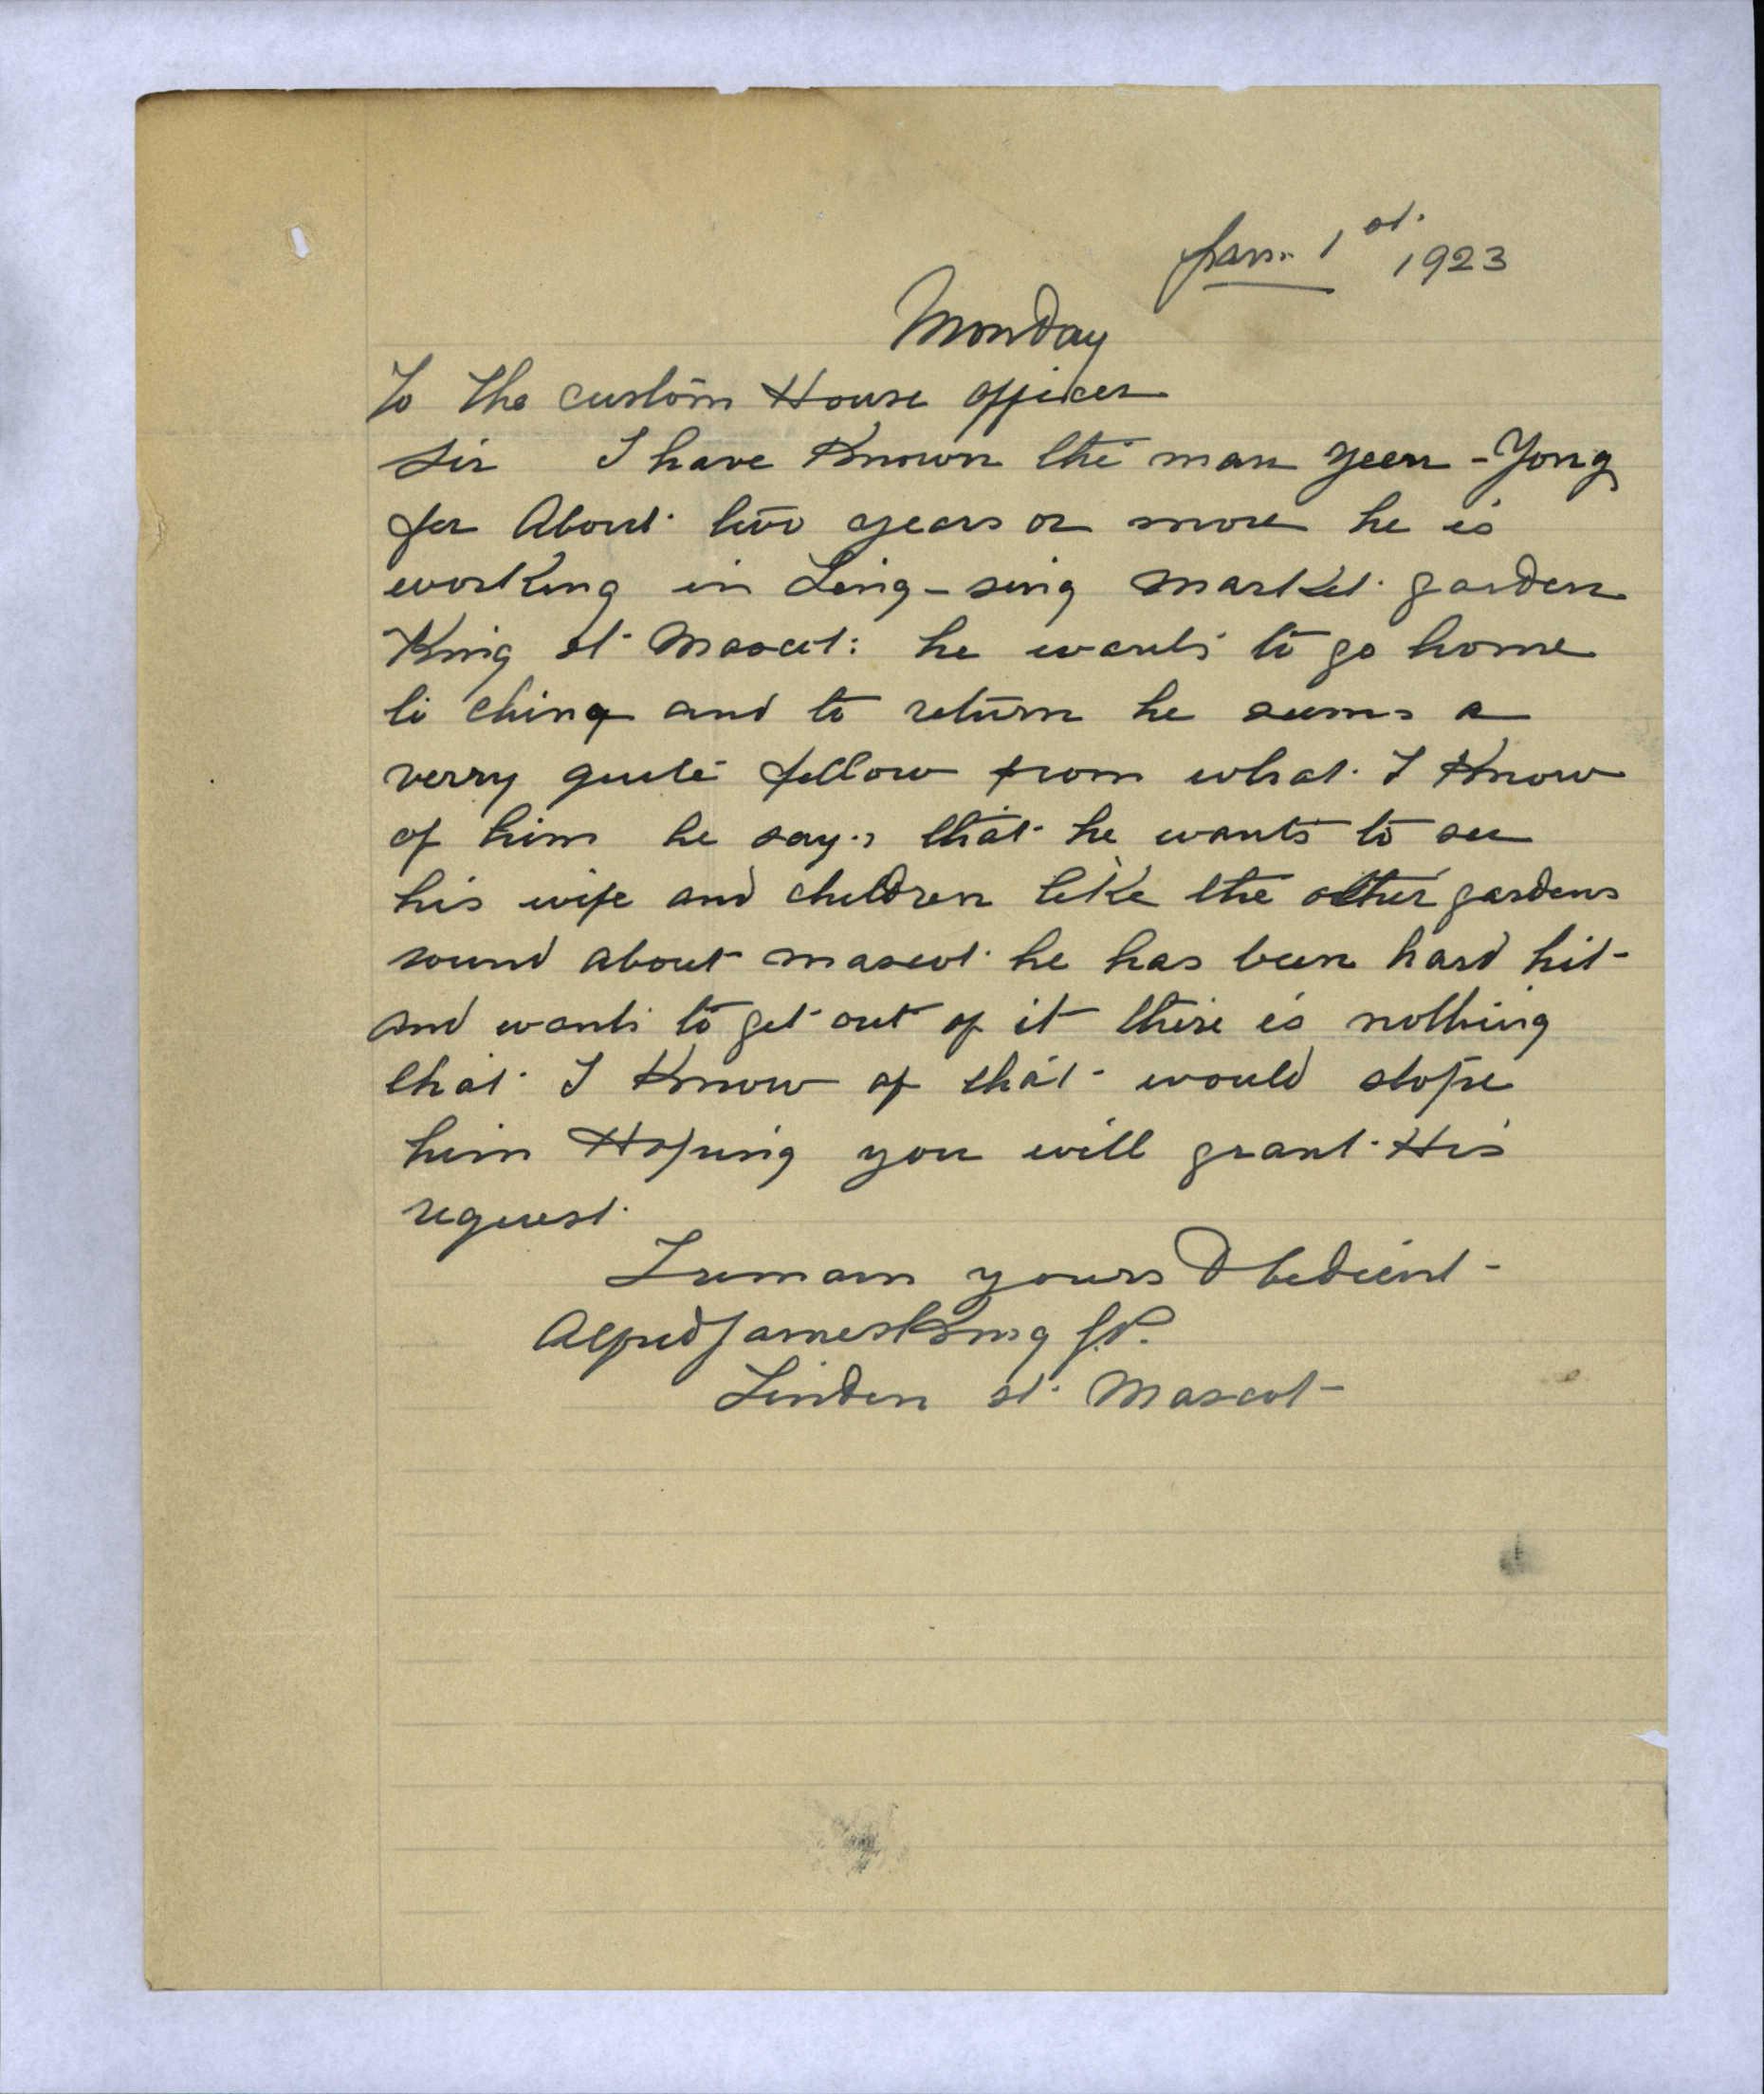 Jan. 1st. 1923
Monday
To The custom House officer
Sir I have Known the man Yeen - Yong
for About two years or more he is
working in Ling - sing market garden
King st Mascot: he wants to go home
to china and to return he seems a
verry quite fellow from what I Know
of him he says that he wants to see
his wife and children like the other gardens
round about mascot he has been hard hit -
and wants to get out of it there is nothing
that I Know of that would stope
him Hoping you will grant His
request.
I remain yours Obedient -
Alfred James King J.P.
Linden st. Mascot -